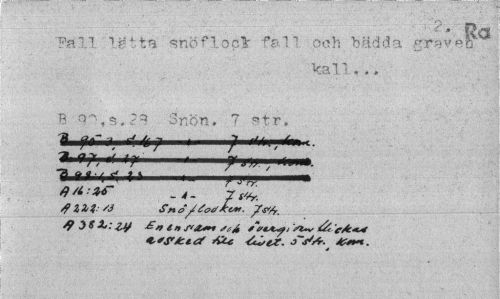 2. Ra
Fall lätta snöflock fall och bädda graven
kall...
B 90,s.28 Snön. 7 str.
7 str., kmr.
B 97, s. 27 -"- 7 str.,
7 str.
A 16:25 -"- 7 str.
A 222:13 Snöflocken. 7 str.
A 382:24 En ensam och övergiven flickas
avsked till livet. 5 str., kmr.